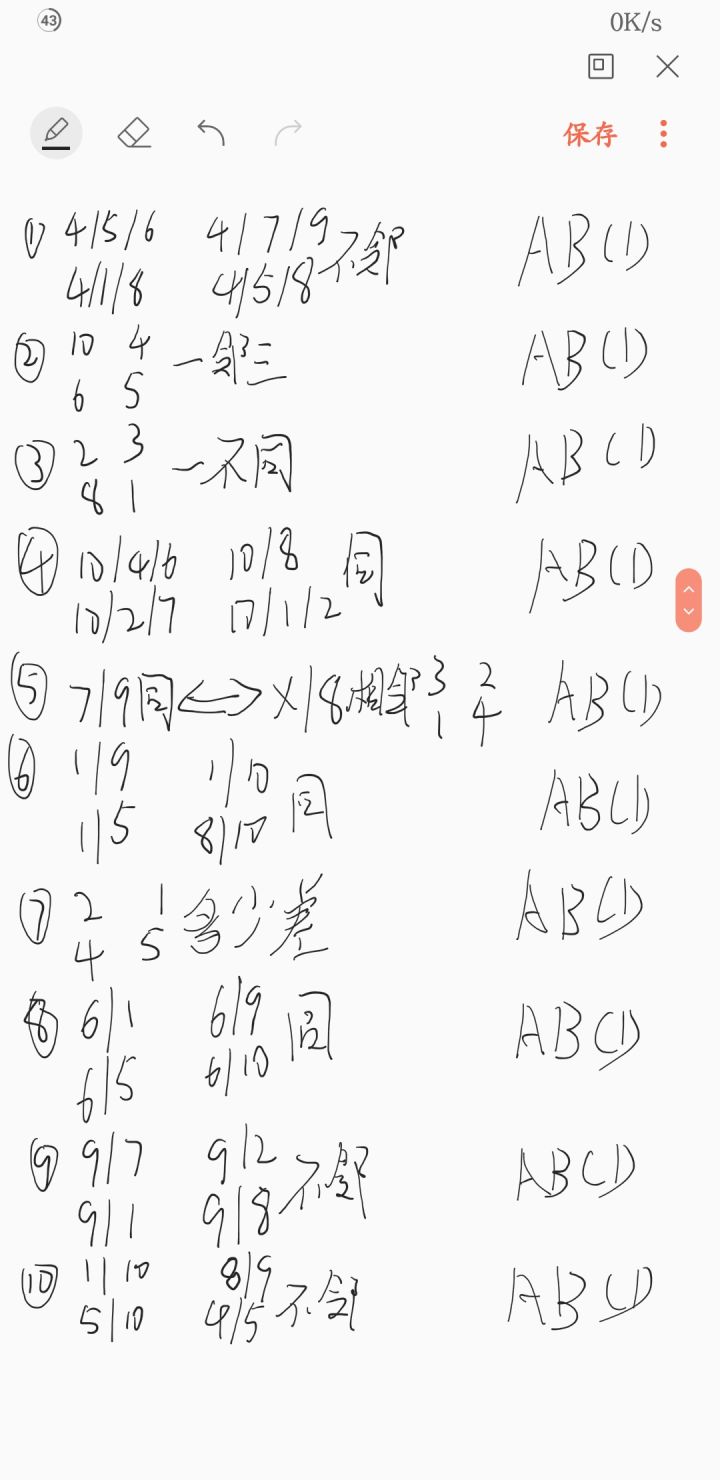 43 0K/s
保存
① 4/5/6 4/7/9 不邻 ABCD
4/1/8 4/5/8
② 10 4 一邻三 ABCD
6 5
③ 2 3 一不同 ABCD
8 1
④ 10/4/6 10/8 同 ABCD
10/2/7 10/1/2
⑤ 7/9同⟺X/8相邻 3 2 ABCD
1 4
⑥ 1/9 1/10 同 ABCD
1/5 8/10
⑦ 2 1 多少差 ABCD
4 5
⑧ 6/1 6/9 同 ABCD
6/5 6/10
⑨ 9/7 9/2 不邻 ABCD
9/1 9/8
⑩ 1/10 8/9 不邻 ABCD
5/10 4/5